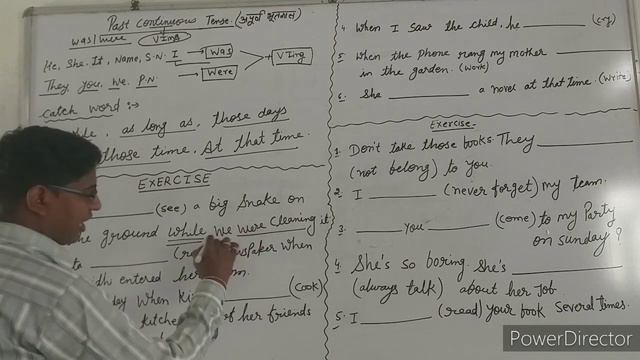 Past Continuous Tense. (अपूर्ण भूतकाल)
was/were VIing
He, She. It, Name, S.N. I → Was + VIing
They, you, We. P.N. → Were
Catch word:→
as long as, those days
those time, At that time.
EXERCISE
(see) a big snake on
ground while we were cleaning it
when
entered her
when (cook)
of her friends
4 When I saw the child, he ________ (cry)
5 When the phone rang my mother ________
in the garden. (work)
6. She ________ a novel at that time. (write)
Exercise.
1. Don't take those books They ________
(not belong) to you.
2. I ________ (never forget) my team.
3. ________ you ________ (come) to my Party
on sunday?
4 She's so boring. She's ________
(always talk) about her Job.
5. I ________ (read) your book Several times.
PowerDirector